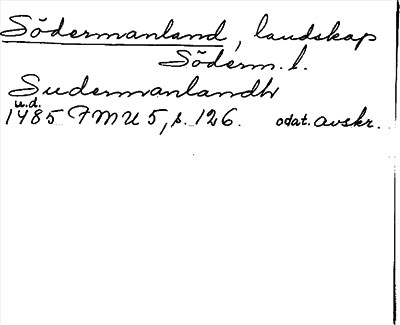 Södermanland, landskap
Söderm. l.
Sudermanlandh
u.d.
1485 FMU 5, s. 126. odat. avskr.